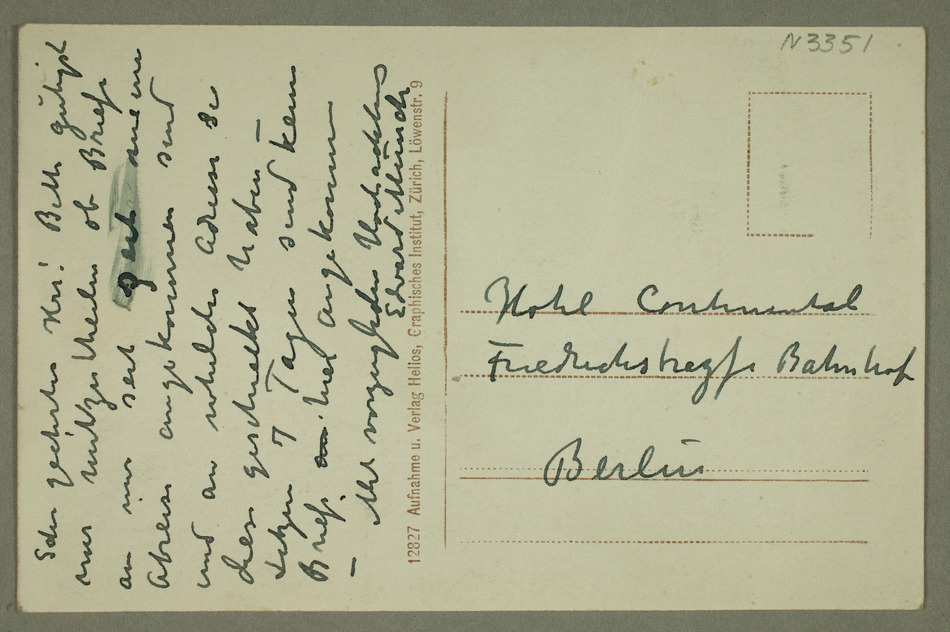 N 3351
Sehr geehrter Herr! Bitte gütigst
mir mitzutheilen ob Briefe
an mir seit meine
Abreise angekommen sind
und an welcher Adresse Sie
diese geschickt haben –
letzen 7 Tagen sind kein
Briefe hier angekommen
–
Mit vorzüglichen Hochachtung
Edvard Munch
12827 Aufnahme u. Verlag Helios, Graphisches Institut, Zürich, Löwenstr. 9
Hotel Continental
Bahnhof
Berlin